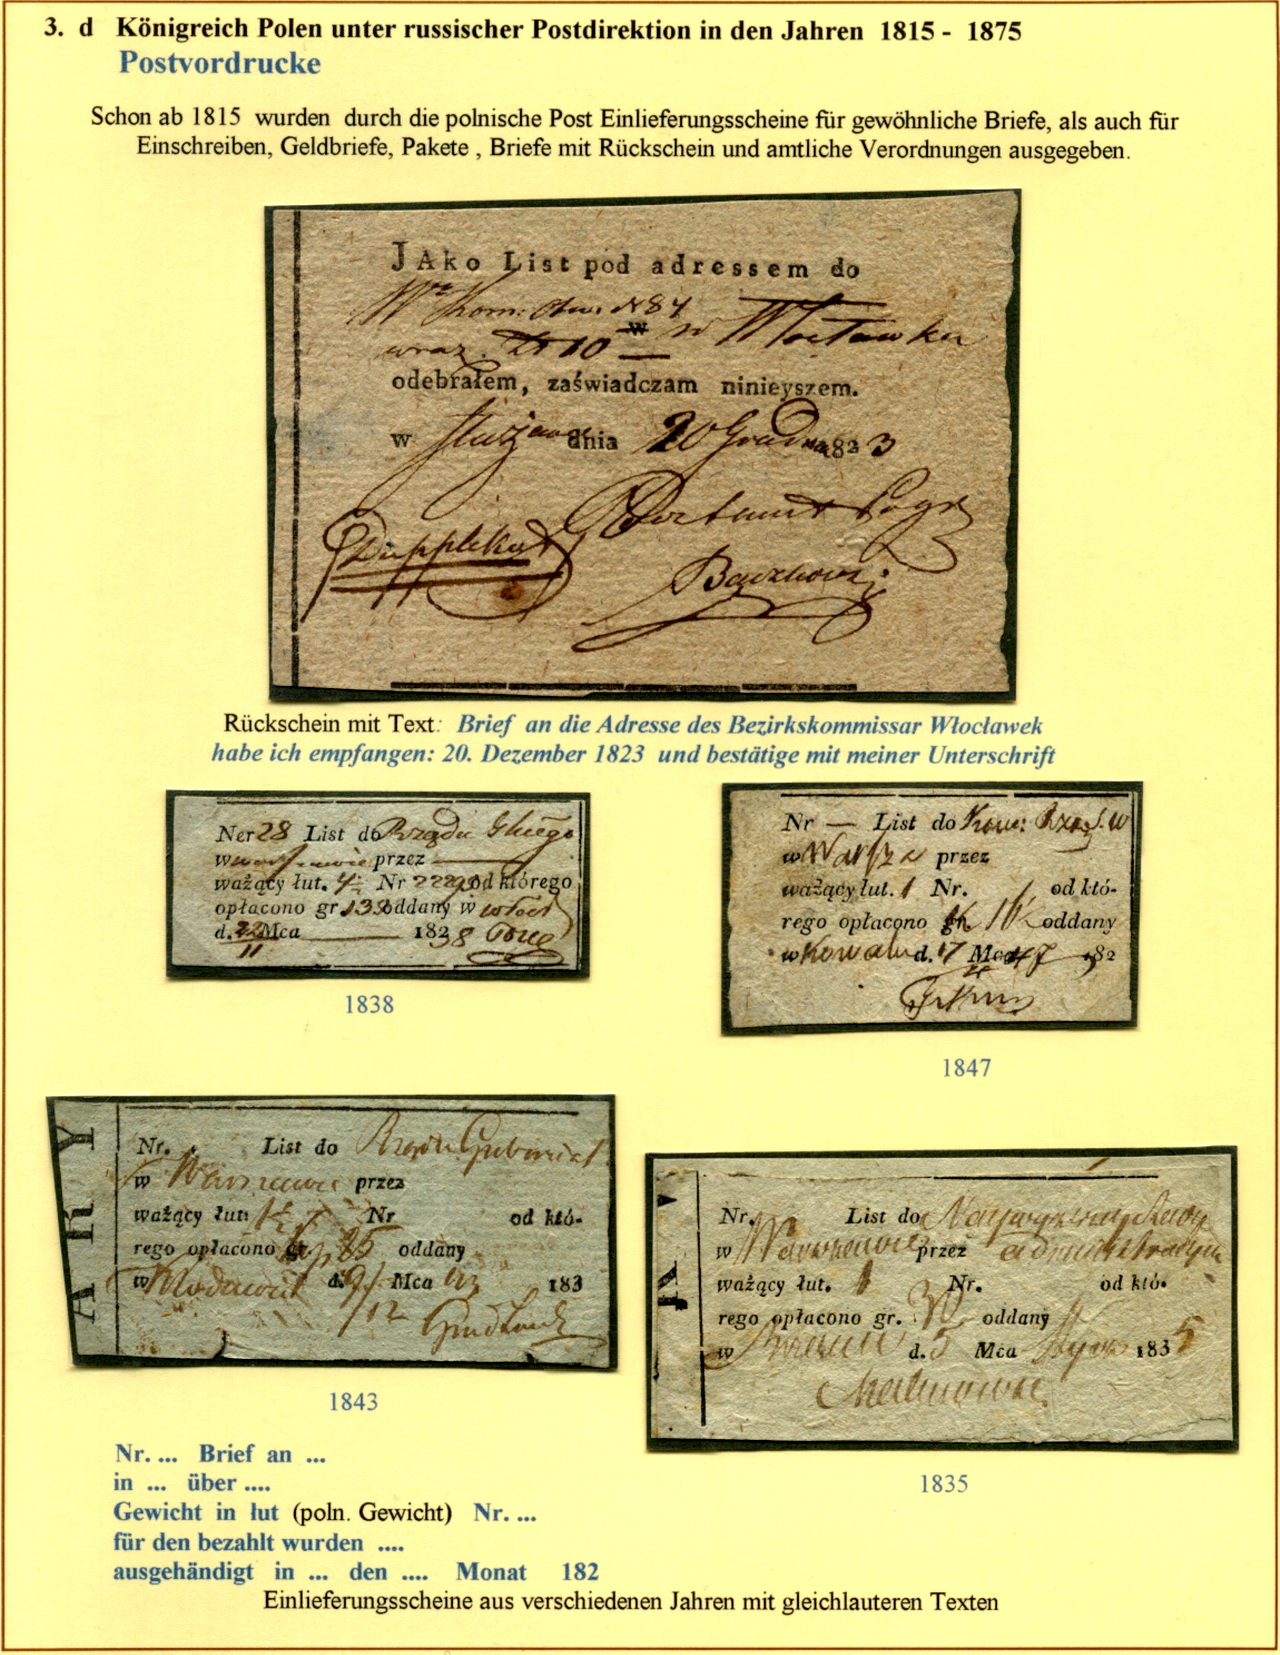 3. d Königreich Polen unter russischer Postdirektion in den Jahren 1815 - 1875
Postvordrucke
Schon ab 1815 wurden durch die polnische Post Einlieferungsscheine für gewöhnliche Briefe, als auch für
Einschreiben, Geldbriefe, Pakete , Briefe mit Rückschein und amtliche Verordnungen ausgegeben.
JAko List pod adressem do
N 84
wraz. 10 w Włocławku
odebrałem, zaświadczam ninieyszem.
w dnia 20 Grudnia 1823
Dupplikat
Rückschein mit Text: Brief an die Adresse des Bezirkskommissar Włocławek
habe ich empfangen: 20. Dezember 1823 und bestätige mit meiner Unterschrift
Ner 28 List do Rządu Głnego
w warszawie przez
ważący łut. 4 Nr od którego
opłacono gr oddany w
d. 22/11 Mca 182 38
1838
Nr — List do
w Warsza przez
ważący łut. 1 Nr. od któ-
rego opłacono gr. oddany
w Kowalu d. 17 Mca 47 182
1847
ARY
Nr. List do Rządu Gubernial
w Warszawie przez
ważący łut: Nr od któ-
rego opłacono gr. 85 oddany
w d. 9/12 Mca 183
1843
Nr. List do
w Warszawie przez
ważący łut. 1 Nr. od któ-
rego opłacono gr. 30 oddany
w d. 5 Mca 1835
Malinowski
1835
Nr. ... Brief an ...
in ... über ....
Gewicht in łut (poln. Gewicht) Nr. ...
für den bezahlt wurden ....
ausgehändigt in ... den .... Monat 182
Einlieferungsscheine aus verschiedenen Jahren mit gleichlauteren Texten